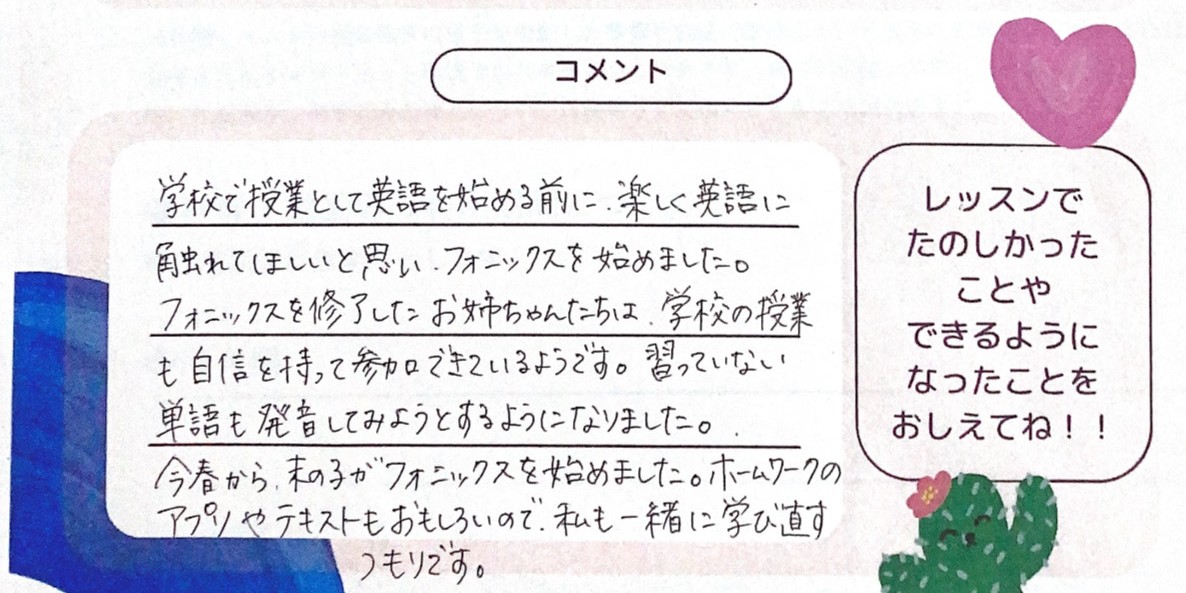 コメント
学校で授業として英語を始める前に、楽しく英語に
触れてほしいと思い、フォニックスを始めました。
フォニックスを修了したお姉ちゃんたちは、学校の授業
も自信を持って参加できているようです。習っていない
単語も発音してみようとするようになりました。
今春から、末の子がフォニックスを始めました。ホームワークの
アプリやテキストもおもしろいので、私も一緒に学び直す
つもりです。
レッスンで
たのしかった
ことや
できるように
なったことを
おしえてね！！